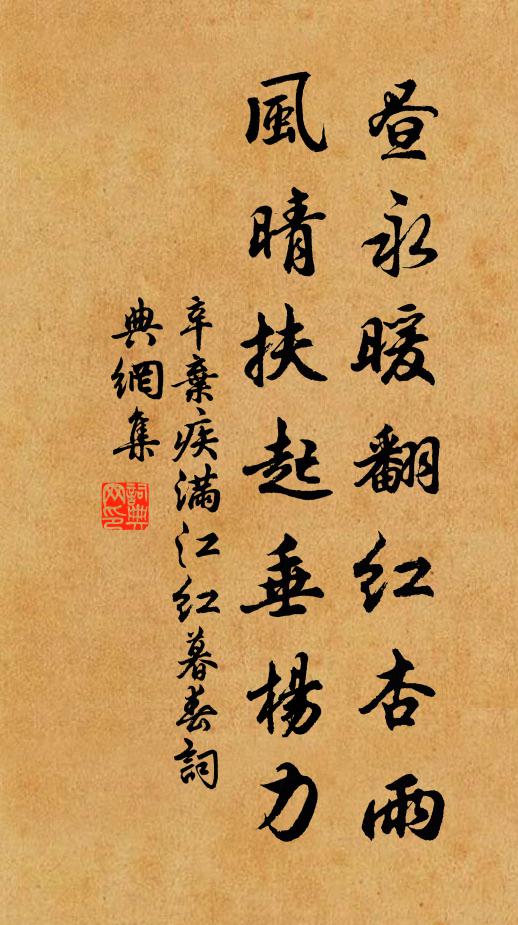 昼永暖翻红杏雨
風晴扶起垂楊力
辛棄疾满江红暮春詞
典網集
詞典
网印